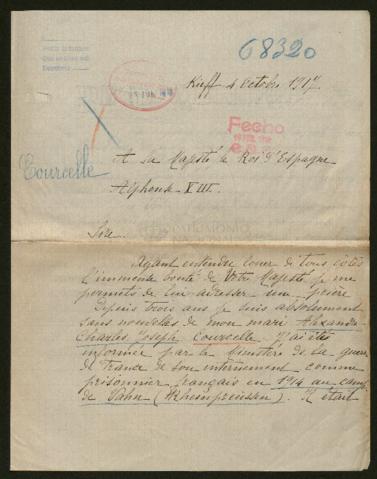 68320
Kieff 4 Octobre 1917.
Fecho
Courcelle
A Sa Majesté le Roi d'Espagne
Alphonse XIII.
Sire
Ayant entendre louer de tous côtés
l'immense bonté de Votre Majesté je me
permets de lui adresser une prière
Depuis trois ans je suis absolument
sans nouvelles de mon mari Alexandre
Charles Joseph Courcelle. J'ai étée
informée par le Ministère de la guerre
de France de son internement comme
prisonnier français en 1914 au camp
de Vahn (Rheinpreussen). Il était